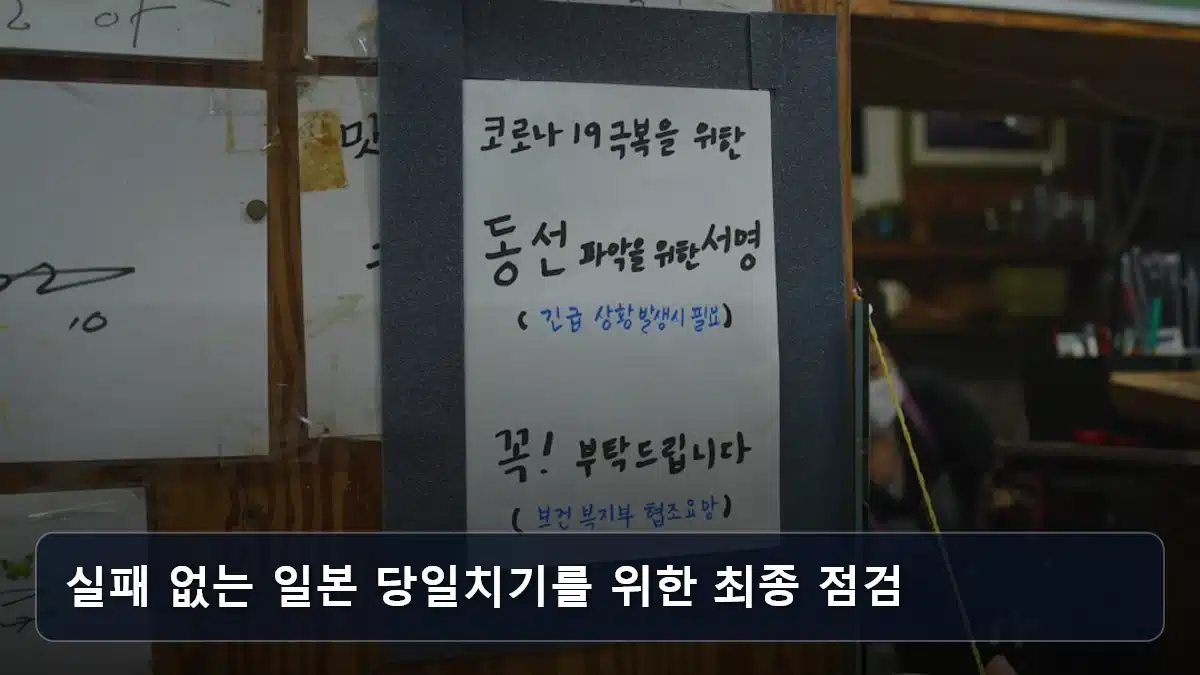 맛
10
코로나 19 극복을 위한
동선 파악을 위한 서명
( 긴급 상황 발생시 필요)
꼭! 부탁드립니다
( 보건복지부 협조요망)
실패 없는 일본 당일치기를 위한 최종 점검